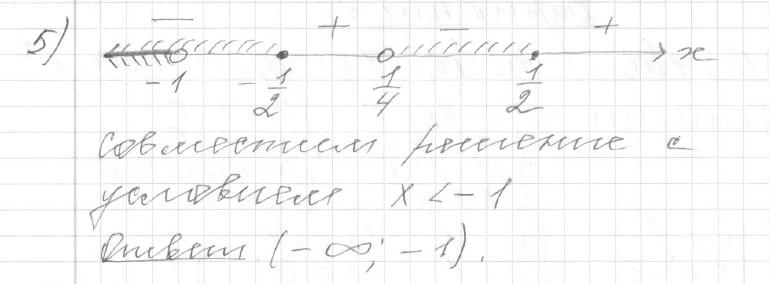 5)
− + − +
-1 -1/2 1/4 1/2 x
Совместим решение с
условием x < -1
Ответ (-∞; -1).